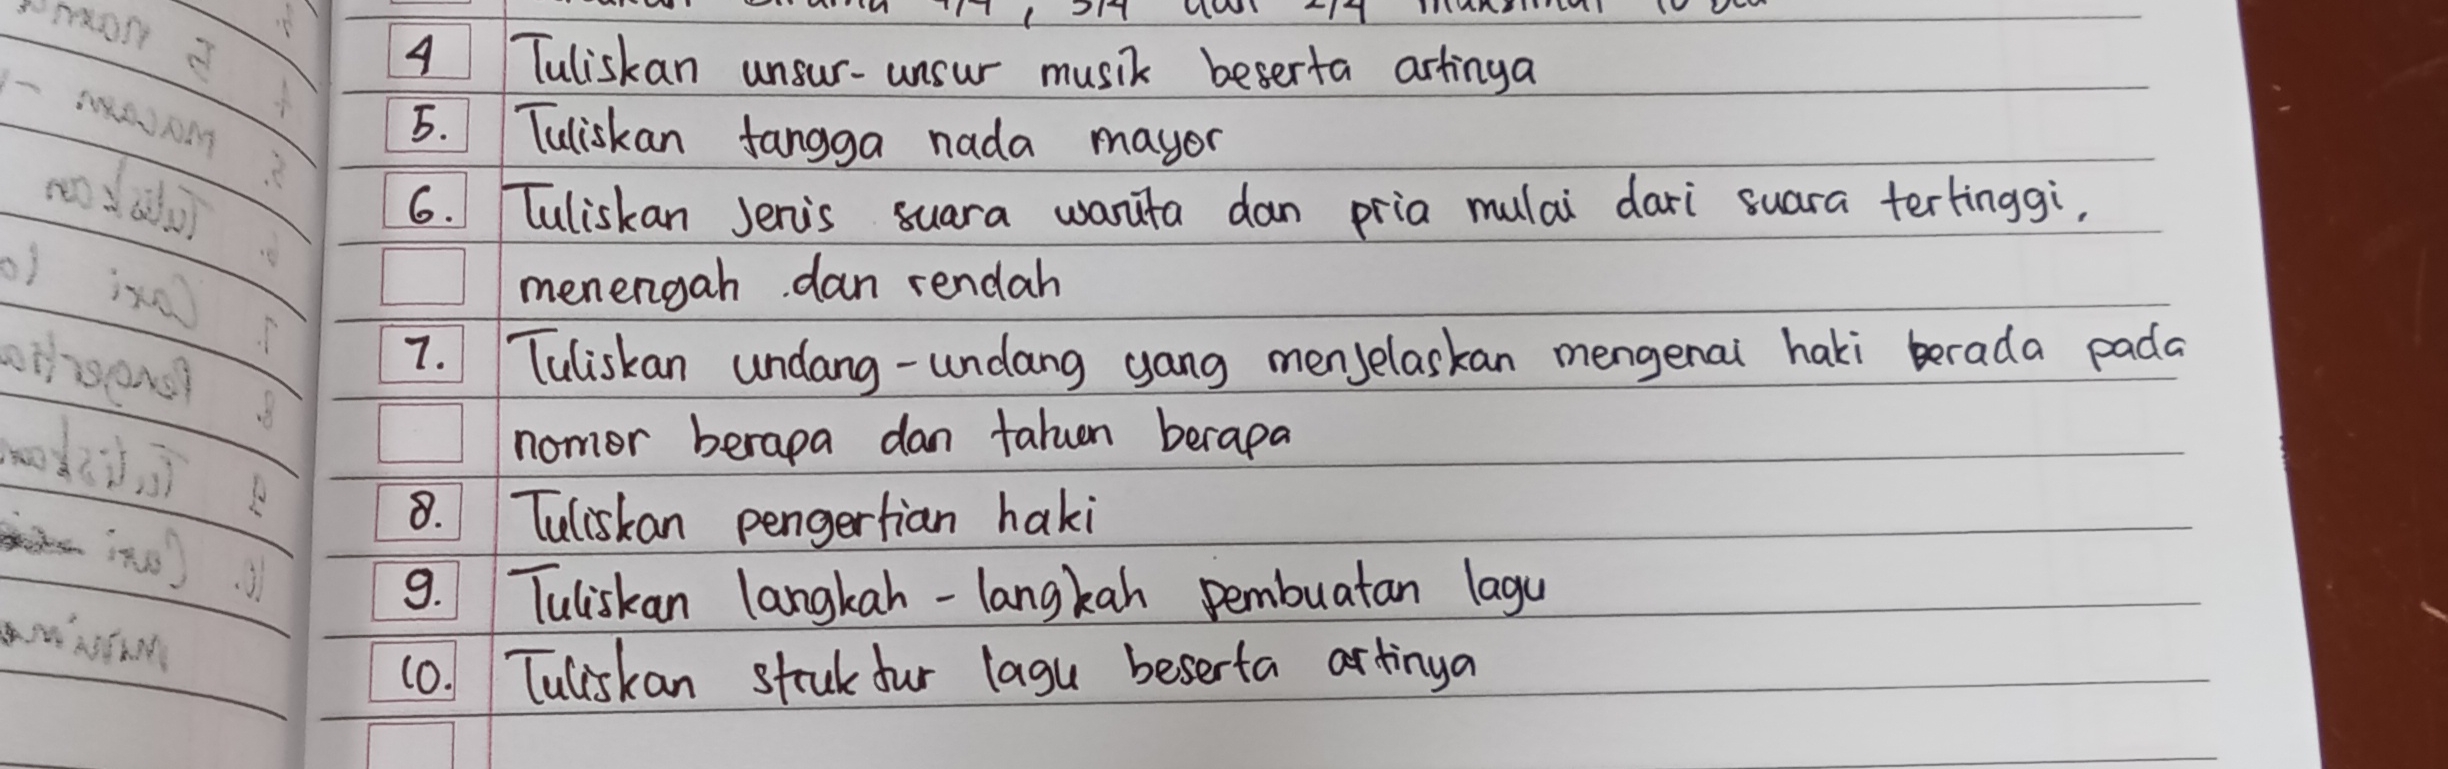 birama 4/4, 3/4 dan 2/4 maksimal 10
4 Tuliskan unsur-unsur musik beserta artinya
5. Tuliskan tangga nada mayor
6. Tuliskan Jenis suara wanita dan pria mulai dari suara tertinggi,
menengah .dan rendah
7. Tuliskan undang-undang yang menjelaskan mengenai haki berada pada
nomor berapa dan tahun berapa
8. Tuliskan pengertian haki
9. Tuliskan langkah - langkah pembuatan lagu
10. Tuliskan struktur lagu beserta artinya